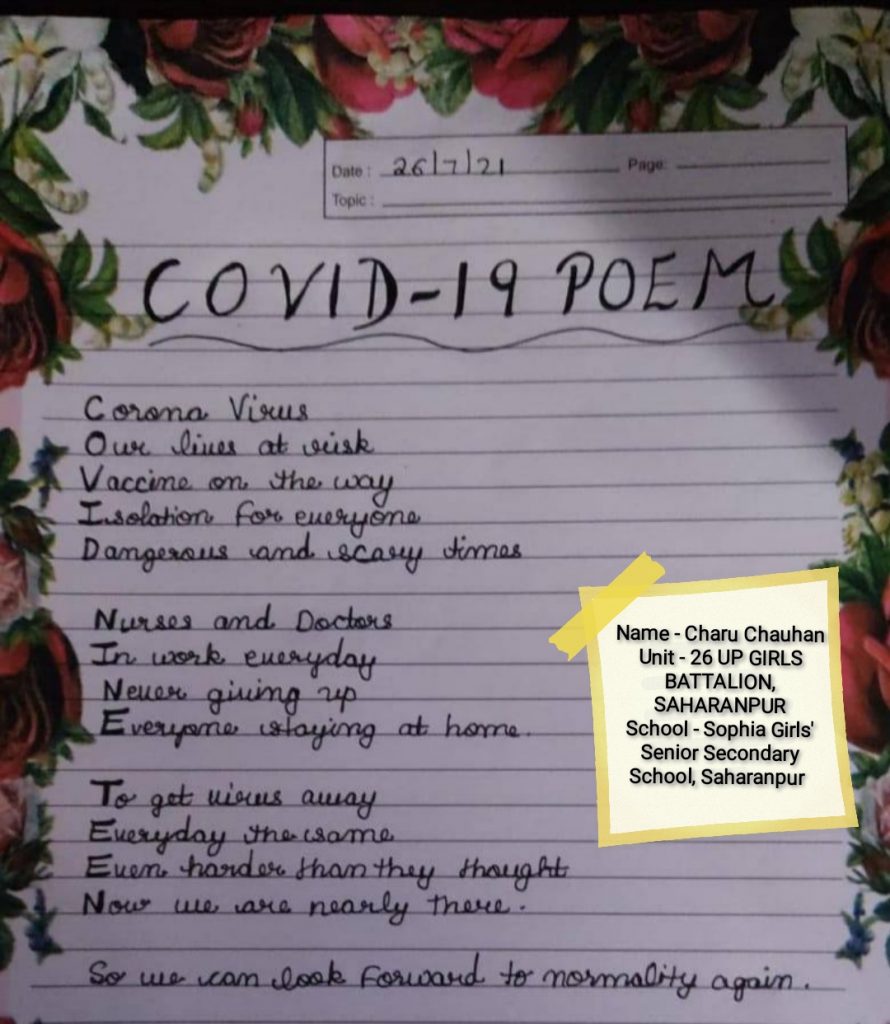 Date : 26/7/21 Page:
Topic :
COVID-19 POEM
Corona Virus
Our lives at risk
Vaccine on the way
Isolation for everyone
Dangerous and scary times
Nurses and Doctors
In work everyday
Never giving up
Everyone staying at home.
To get virus away
Everyday the same
Even harder than they thought
Now we are nearly there.
So we can look forward to normality again.
Name - Charu Chauhan
Unit - 26 UP GIRLS
BATTALION,
SAHARANPUR
School - Sophia Girls'
Senior Secondary
School, Saharanpur